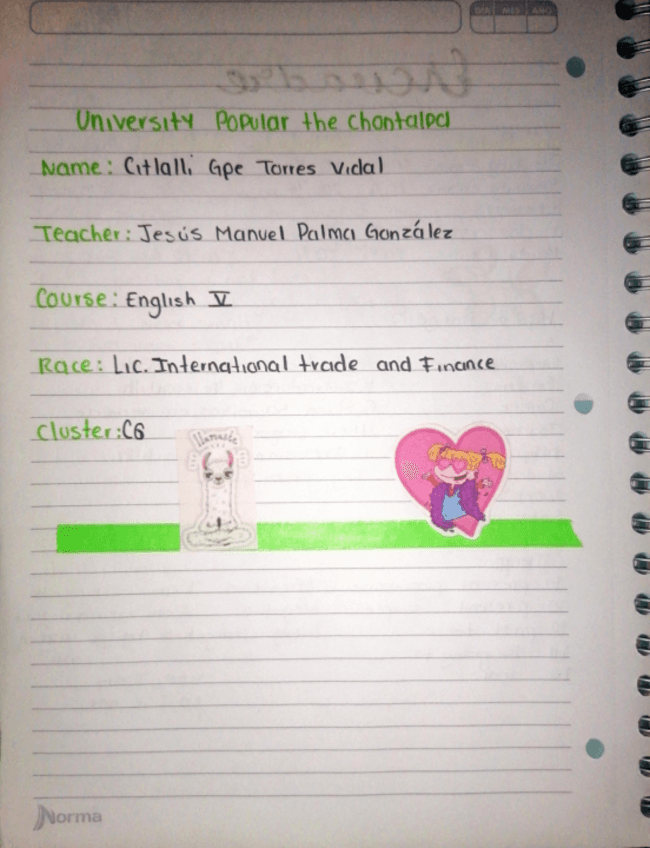 DIA MES AÑO
University Popular the Chontalpa
Name: Citlalli Gpe Torres Vidal
Teacher: Jesús Manuel Palma González
Course: English V
Race: Lic. International trade and Finance
Cluster: C6
llamaste
Norma